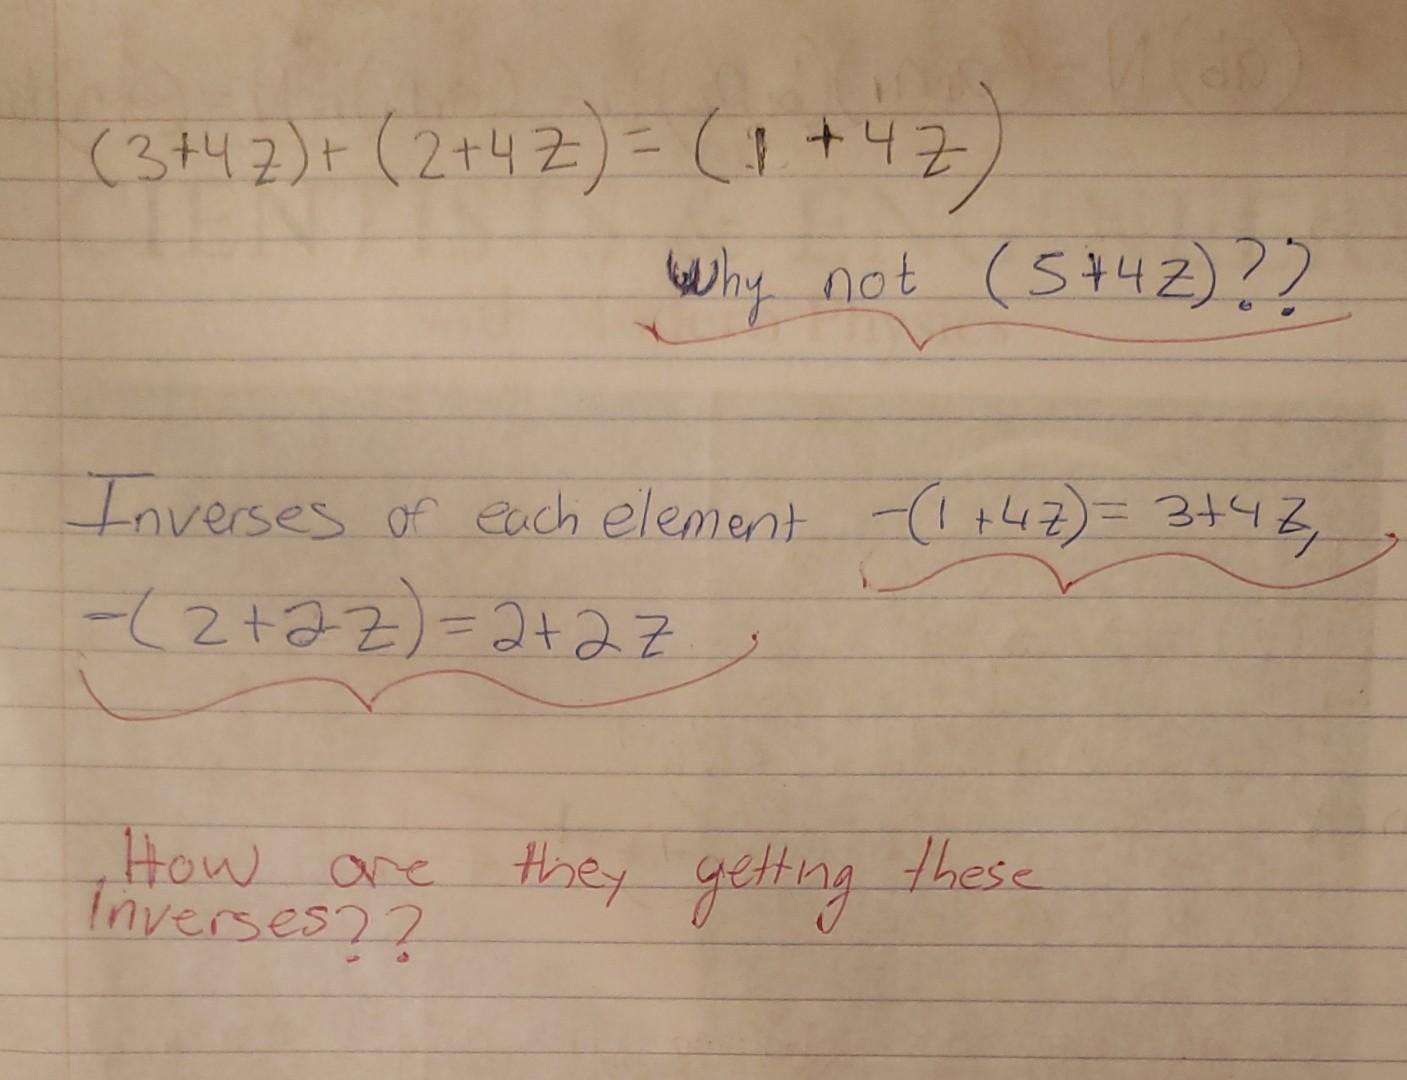 (3+4Z)+(2+4Z)=(1+4Z)
Why not (5+4Z)??
Inverses of each element -(1+4Z)= 3+4Z,
-(2+2Z)=2+2Z
How are they getting these
Inverses??